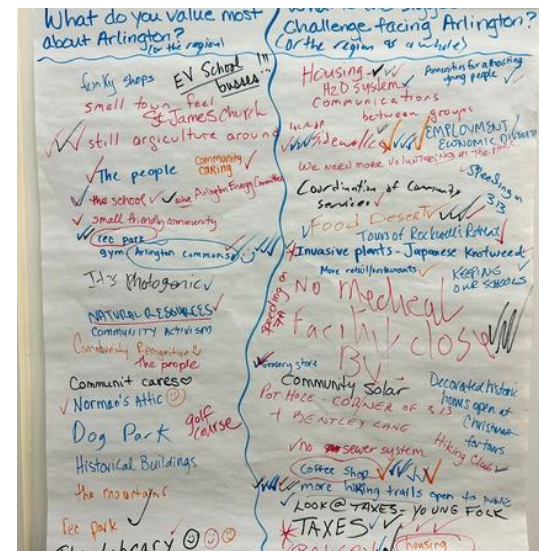 What do you value most
about Arlington?
(or the region)
funky shops
EV School
busses!!!
small town feel
St James Church
still argiculture around
The people
Community
caring
the school
Arlington Energy Committee
small friendly community
rec park
gym Arlington commons
It's photogenic
NATURAL RESOURCES
COMMUNITY ACTIVISM
Community Recognition
the people
Communit cares
Norman's Attic
golf
course
Dog Park
Historical Buildings
the mountains
rec park
challenge facing Arlington?
(or the region as a whole)
Housing
H2O System
Communications
between groups
Amenities for attracting
young people
Sidewalks
EMPLOYMENT/
ECONOMIC
We need more volunteering in the
Speeding on
313
Coordination of Community
services
Food Desert
Tours of Rockwell's
Invasive plants - Japanese Knotweed
More retail/restaurants
KEEPING
OUR SCHOOLS
Speeding on
7A
No Medical
Facility close
By
Grocery store
Community Solar
Decorated historic
homes open at
Christmas
for tours
POT HOLE - CORNER OF 313
+ BENTLEY LANE
Hiking Club
no sewer system
Coffee Shop
more hiking trails open to public
LOOK @ TAXES - YOUNG FOLK
TAXES
housing